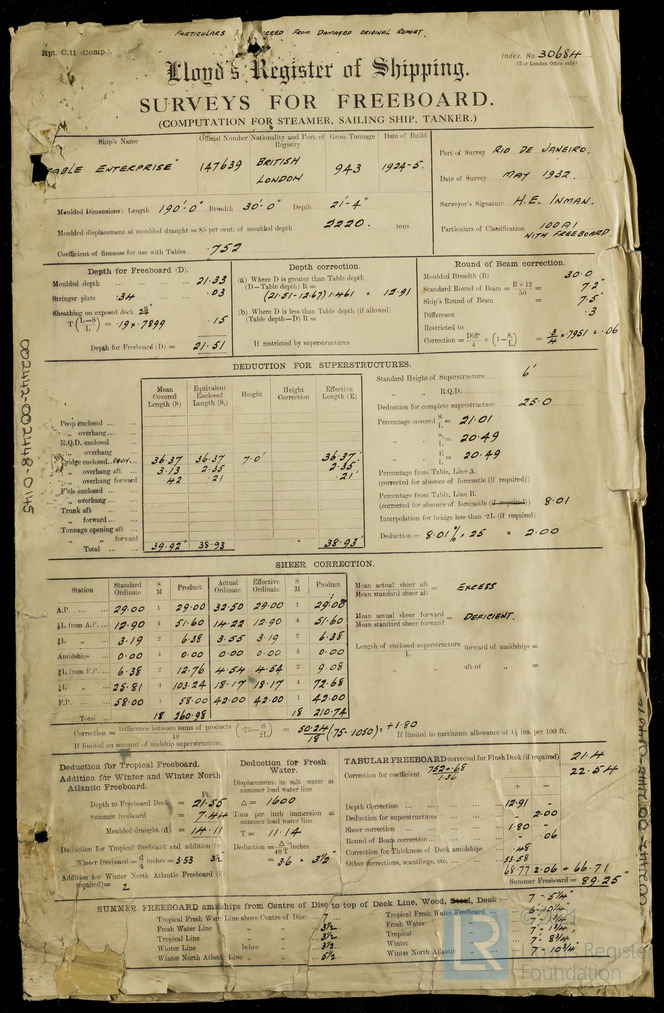 PARTICULARS FROM DAMAGED ORIGINAL REPORT.
Rpt. C.11 (Comp.).
Index. No. 30684
(For London Office only).
Lloyd's Register of Shipping.
SURVEYS FOR FREEBOARD.
(COMPUTATION FOR STEAMER, SAILING SHIP, TANKER.)
Ship's Name Official Number Nationality and Port of Registry Gross Tonnage Date of Build
ABLE ENTERPRISE" 147639 BRITISH LONDON 943 1924-5.
Port of Survey RIO DE JANEIRO.
Date of Survey MAY 1932.
Surveyor's Signature H.E. INMAN.
Particulars of Classification 100A1 WITH FREEBOARD.
Moulded Dimensions: Length 190'-0" Breadth 30'-0" Depth 21'-4"
Moulded displacement at moulded draught = 85 per cent. of moulded depth 2220. tons
Coefficient of fineness for use with Tables .752
Depth for Freeboard (D).
Moulded depth ... ... ... 21.33
Stringer plate .34 ... ... .03
Sheathing on exposed deck 2¼"
T (L-S/L) = .19 × .7899 .15
Depth for Freeboard (D) = 21.51
Depth correction.
(a) Where D is greater than Table depth
(D—Table depth) R =
(21.51-12.67) 1.461 = 12.91
(b) Where D is less than Table depth (if allowed)
(Table depth—D) R =
If restricted by superstructures
Round of Beam correction.
Moulded Breadth (B) 30.0
Standard Round of Beam = B × 12 / 50 = 7.2"
Ship's Round of Beam = 7.5"
Difference .3
Restricted to
Correction = Diff. / 4 × (1 — S/L) = .3/4 × .7951 = .06
DEDUCTION FOR SUPERSTRUCTURES.
Mean Covered Length (S) Equivalent Enclosed Length (S₁) Height Height Correction Effective Length (E)
Poop enclosed ... ...
" overhang ... ...
R.Q.D. enclosed
" overhang
Bridge enclosed 36.37 36.37 7.0' 36.37
" overhang aft 3.13 2.35 2.35
" overhang forward .42 .21 .21
F'cle enclosed ... ...
" overhang ...
Trunk aft ...
" forward ...
Tonnage opening aft ...
" forward
Total ... ... 39.92 38.93 38.93
Standard Height of Superstructure 6'
" " R.Q.D.
Deduction for complete superstructure 25.0
Percentage covered S/L = 21.01
" " S₁/L = 20.49
" " E/L = 20.49
Percentage from Table, Line A.
(corrected for absence of forecastle (if required))
Percentage from Table, Line B.
(corrected for absence of forecastle (if required)) 8.01
Interpolation for bridge less than .2L (if required)
Deduction = 8.01% × 25 = 2.00
SHEER CORRECTION.
Station Standard Ordinate S M Product Actual Ordinate Effective Ordinate S M Product
A.P. ... ... 29.00 1 29.00 32.50 29.00 1 29.00
⅙L from A.P. ... 12.90 4 51.60 14.22 12.90 4 51.60
⅓L " ... 3.19 2 6.38 3.55 3.19 2 6.38
Amidships ... 0.00 4 0.00 0.00 0.00 4 0.00
⅓L from F.P. ... 6.38 2 12.76 4.54 4.54 2 9.08
⅙L " ... 25.81 4 103.24 18.17 18.17 4 72.68
F.P. ... ... 58.00 1 58.00 42.00 42.00 1 42.00
Total ... ... 18 260.98 18 210.74
Mean actual sheer aft / Mean standard sheer aft = EXCESS
Mean actual sheer forward / Mean standard sheer forward = DEFICIENT.
Length of enclosed superstructure forward of amidships / L =
" " aft of " =
Correction = Difference between sums of products / 18 (.75 — S/2L) = 50.24/18 (.75-.1050) = +1.80
If limited on account of midship superstructure.
If limited to maximum allowance of 1½ ins. per 100 ft.
Deduction for Tropical Freeboard.
Addition for Winter and Winter North Atlantic Freeboard.
Ft.
Depth to Freeboard Deck = 21.55
Summer freeboard = 7.44
Moulded draught (d) = 14.11
Deduction for Tropical freeboard and addition for
Winter freeboard = d/4 inches = 3.53 3½
Addition for Winter North Atlantic Freeboard (if required) = 2
Deduction for Fresh Water.
Displacement in salt water at summer load water line
Δ = 1600
Tons per inch immersion at summer load water line
T = 11.14
Deduction = Δ / 40 T inches
= 3.6 = 3½"
TABULAR FREEBOARD corrected for Flush Deck (if required) 21.4
Correction for coefficient .752+.68 / 1.36 22.54
+ −
Depth Correction ... ... ... 12.91 –
Deduction for superstructures ... ... – 2.00
Sheer correction ... ... ... 1.80 –
Round of Beam correction ... ... – .06
Correction for Thickness of Deck amidships ... .48
Other corrections, scantlings, etc. ... 53.58
68.77 2.06 + 66.71
Summer Freeboard = 89.25"
SUMMER FREEBOARD amidships from Centre of Disc to top of Deck Line, Wood, Steel, Deck:— 7 - 5¼"
Tropical Fresh Water Line above Centre of Disc ... 7
Fresh Water Line " " ... 3½
Tropical Line " " ... 3½
Winter Line below " ... 3½
Winter North Atlantic Line " " ... 5½
Tropical Fresh Water Freeboard ... 6-10¼"
Fresh Water " ... 7- 1¾"
Tropical " ... 7- 1¾"
Winter " ... 7- 8¾"
Winter North Atlantic " ... 7- 10¾"
002442-002448-0145
LR
Lloyd's Register
Foundation